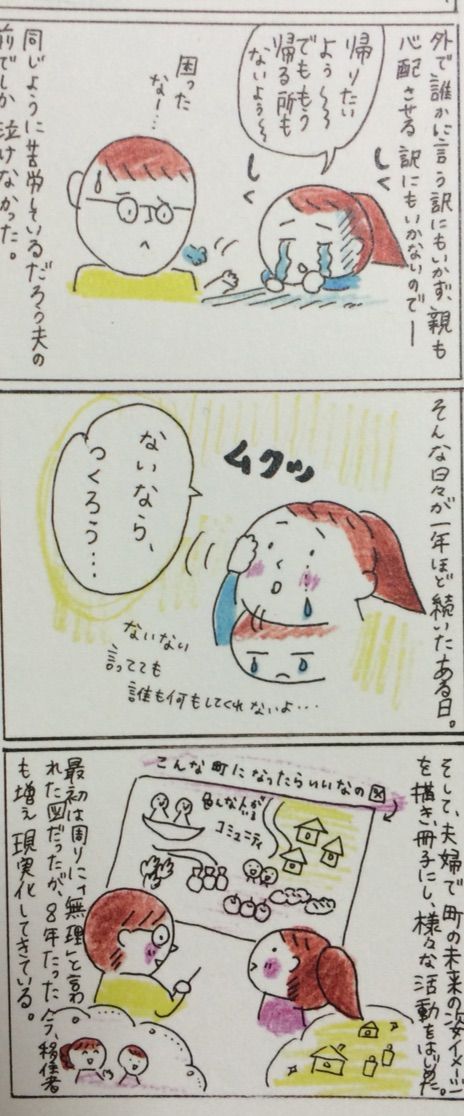 外で誰かに言う訳にもいかず、親も
心配させる訳にもいかないのでー
帰りたい
よう～～
でももう
帰る所も
ないよう～～
しく
しく
困った
なー…
同じように苦労しているだろう夫の
前でしか泣けなかった。
そんな日々が一年ほど続いたある日。
ムクッ
ないなら、
つくろう…
ないない
言ってても
誰も何もしてくれないよ…
そして、夫婦で町の未来の姿イメージ
を描き、冊子にし、様々な活動をはじめた。
こんな町になったらいいなの図
色んな人がいる
コミュニティ
最初は周りに「無理」と言わ
れた図だったが、8年たった今、移住者
も増え現実化してきている。